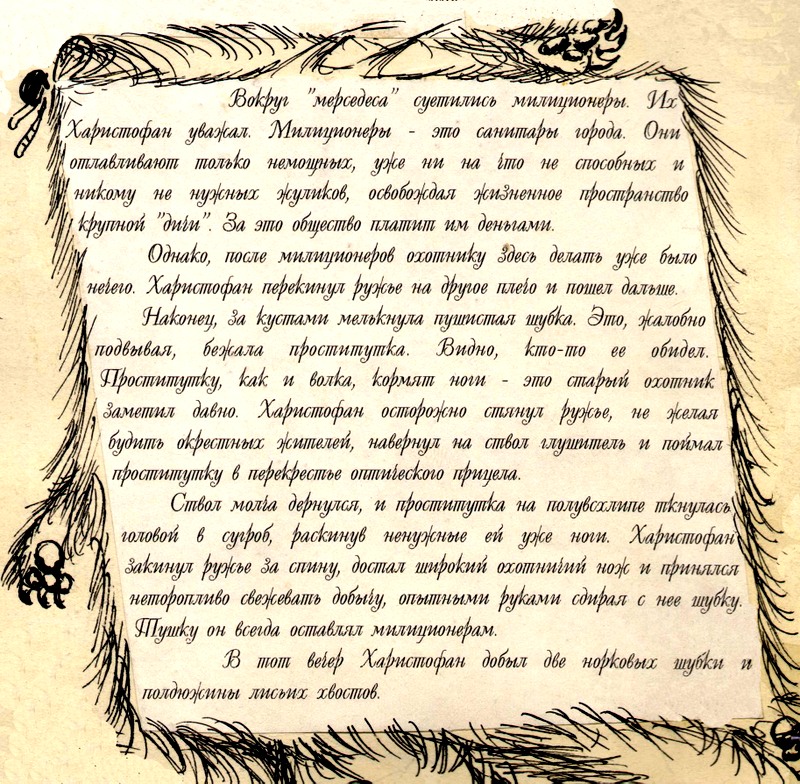 Вокруг "мерседеса" суетились милиционеры. Их
Харистофан уважал. Милиционеры - это санитары города. Они
отлавливают только немощных, уже ни на что не способных и
никому не нужных жуликов, освобождая жизненное пространство
крупной "дичи". За это общество платит им деньгами.
Однако, после милиционеров охотнику здесь делать уже было
нечего. Харистофан перекинул ружье на другое плечо и пошел дальше.
Наконец, за кустами мелькнула пушистая шубка. Это, жалобно
подвывая, бежала проститутка. Видно, кто-то ее обидел.
Проститутку, как и волка, кормят ноги - это старый охотник
заметил давно. Харистофан осторожно стянул ружье, не желая
будить окрестных жителей, навернул на ствол глушитель и поймал
проститутку в перекрестье оптического прицела.
Ствол молча дернулся, и проститутка на полувсхлипе ткнулась
головой в сугроб, раскинув ненужные ей уже ноги. Харистофан
закинул ружье за спину, достал широкий охотничий нож и принялся
неторопливо свежевать добычу, опытными руками сдирая с нее шубку.
Тушку он всегда оставлял милиционерам.
В тот вечер Харистофан добыл две норковых шубки и
полдюжины лисьих хвостов.